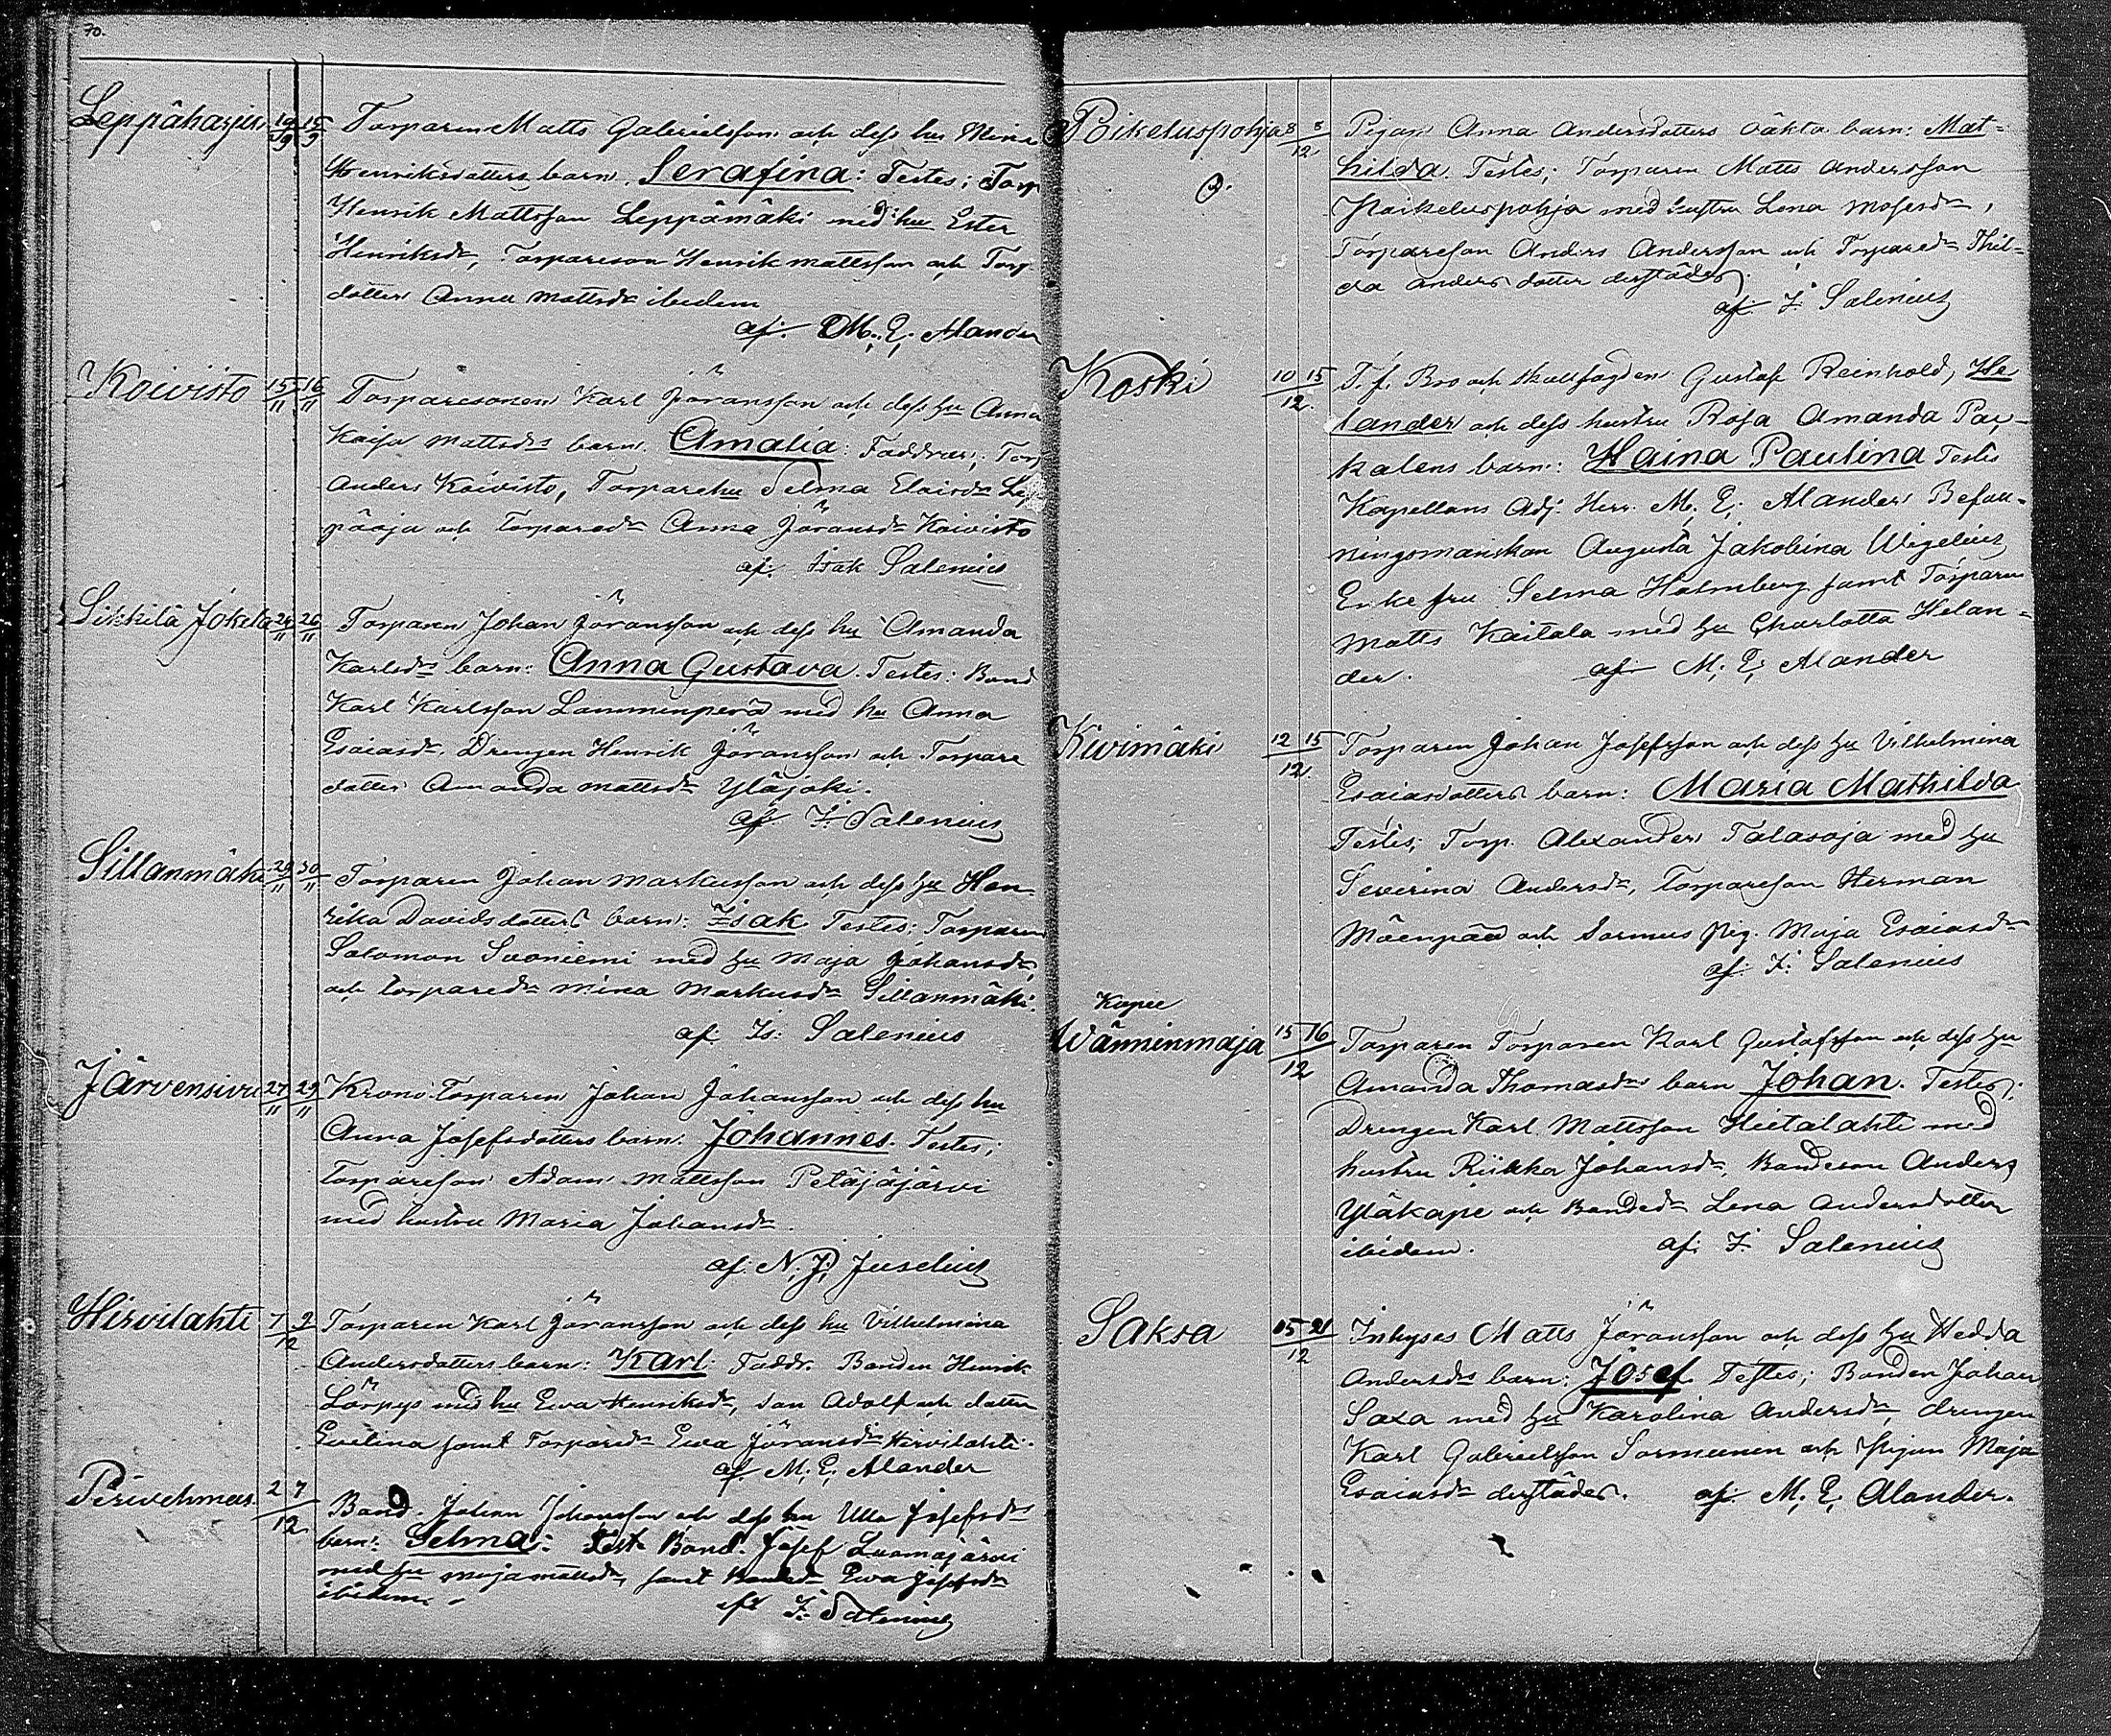 70.
Leppäharju 19/9 15/9 Torparen Matts Gabrielsson och dess hu Mina
Henriksdotters barn. Serafina: Testes; Torp
Henrik Mattsson Leppämäki med hu Ester
Henriksdr, Torpareson Henrik Mattsson och Torp
dotter Anna Mattsdr ibidem
af. M. E. Alander
Koivisto 15/11 16/11 Torparesonen Karl Göransson och dess hu Anna
Kaisa Mattsdrs barn. Amalia: Faddrar; Torp
Anders Koivisto, Torparehu Selma Elaisdr Lep
päoja och Torparedr Anna Göransdr Koivisto
af. Isak Salenius
Sikkilä Jokela 24/11 26/11 Torparen Johan Göransson och dess hu Amanda
Karlsdrs barn: Anna Gustava. Testes: Bond
Karl Karlsson Lamminperä med hu Anna
Esaiasdr. Drengen Henrik Göransson och Torpare
dotter Amanda Mattsdr Yläjoki.
af. I. Salenius
Sillanmäki 29/11 30/11 Torparen Johan Markusson och dess hu Hen
rika Davidsdotters barn: Isak Testes; Torparen
Salomon Suoniemi med hu Maja Johansdr,
och torparedr Mina Markusdr Sillanmäki.
af Is: Salenius
Järvensivu 27/11 29/11 Krono Torparen Johan Johansson och dess hu
Anna Josefsdotters barn. Johannes. Testes;
Torpareson Adam Mattsson Petäjäjärvi
med hustru Maria Johansdr.
af. N. J. Juselius
Hirvilahti 7 9/12 Torparen Karl Göransson och dess hu Vilhelmina
Andersdotters barn: Karl: Faddr. Bonden Henrik
Lörpys med hu Ewa Henriksdr, son Adolf och dotter
Evelina samt Torparedr Ewa Göransdr Hirvilahti.
af M. E. Alander
2 7/12 Bond. Johan Johansson och dess hu Ulla Josefsdrs
barn: Selma: Test. Bond. Josef Luomajärvi
med hu Maja Mattsdr, samt Bondedr Ewa Josefsdr
ibidem.
af I. Salenius
Poikeluspohja 8 8/12 Pigan Anna Andersdotters oäkta barn: Mat-
O. hilda. Testes; Torparen Matts Andersson
Poikeluspohja med hustru Lena Mosesdr,
Torpareson Anders Andersson och Torparedr Thil-
da Anders dotter derstädes
af. I. Salenius
Koski 10 15/12. T. f. Bro och skallfogden Gustaf Reinhold, He
lander och dess hustru Rosa Amanda Pac-
kalens barn: Haina Paulina Testes
Kapellans Adj: Herr M. E. Alander Befall-
ningsmanskan Augusta Jakobina Wigelius
Enke fru Selma Holmberg samt Torparen
Matts Kaitala med hu Charlotta Helan-
der. af M. E. Alander
Kivimäki 12 15/12. Torparen Johan Josefsson och dess hu Vilhelmina
Esaiasdotters barn: Maria Mathilda
Testes; Torp. Alexander Talasoja med hu
Severina Andersdr, Torpareson Herman
Mäenpää och Sormus pig. Maja Esaiasdr
af I. Salenius
Kapee
Wänninmaja 15 16/12 Torparen Torparen Karl Gustafsson och dess hu
Amanda Thomasdrs barn Johan. Testes;
Drengen Karl Mattsson Hietalahti med
hustru Riikka Johansdr, Bondeson Anders
Yläkape och Bondedr Lena Andersdotter
ibidem. af. I. Salenius
Saksa 15 21/12 Inhyses Matts Göransson och dess hu Hedda
Andersdrs barn: Josef. Testes; Bonden Johan
Saxa med hu Karolina Andersdr, drengen
Karl Gabrielsson Sormunen och Pigan Maja
Esaiasdr derstädes. af. M. E. Alander.